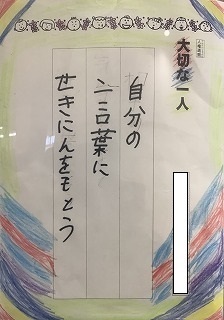 大切な一人
自分の
言葉に
せきにんをもとう